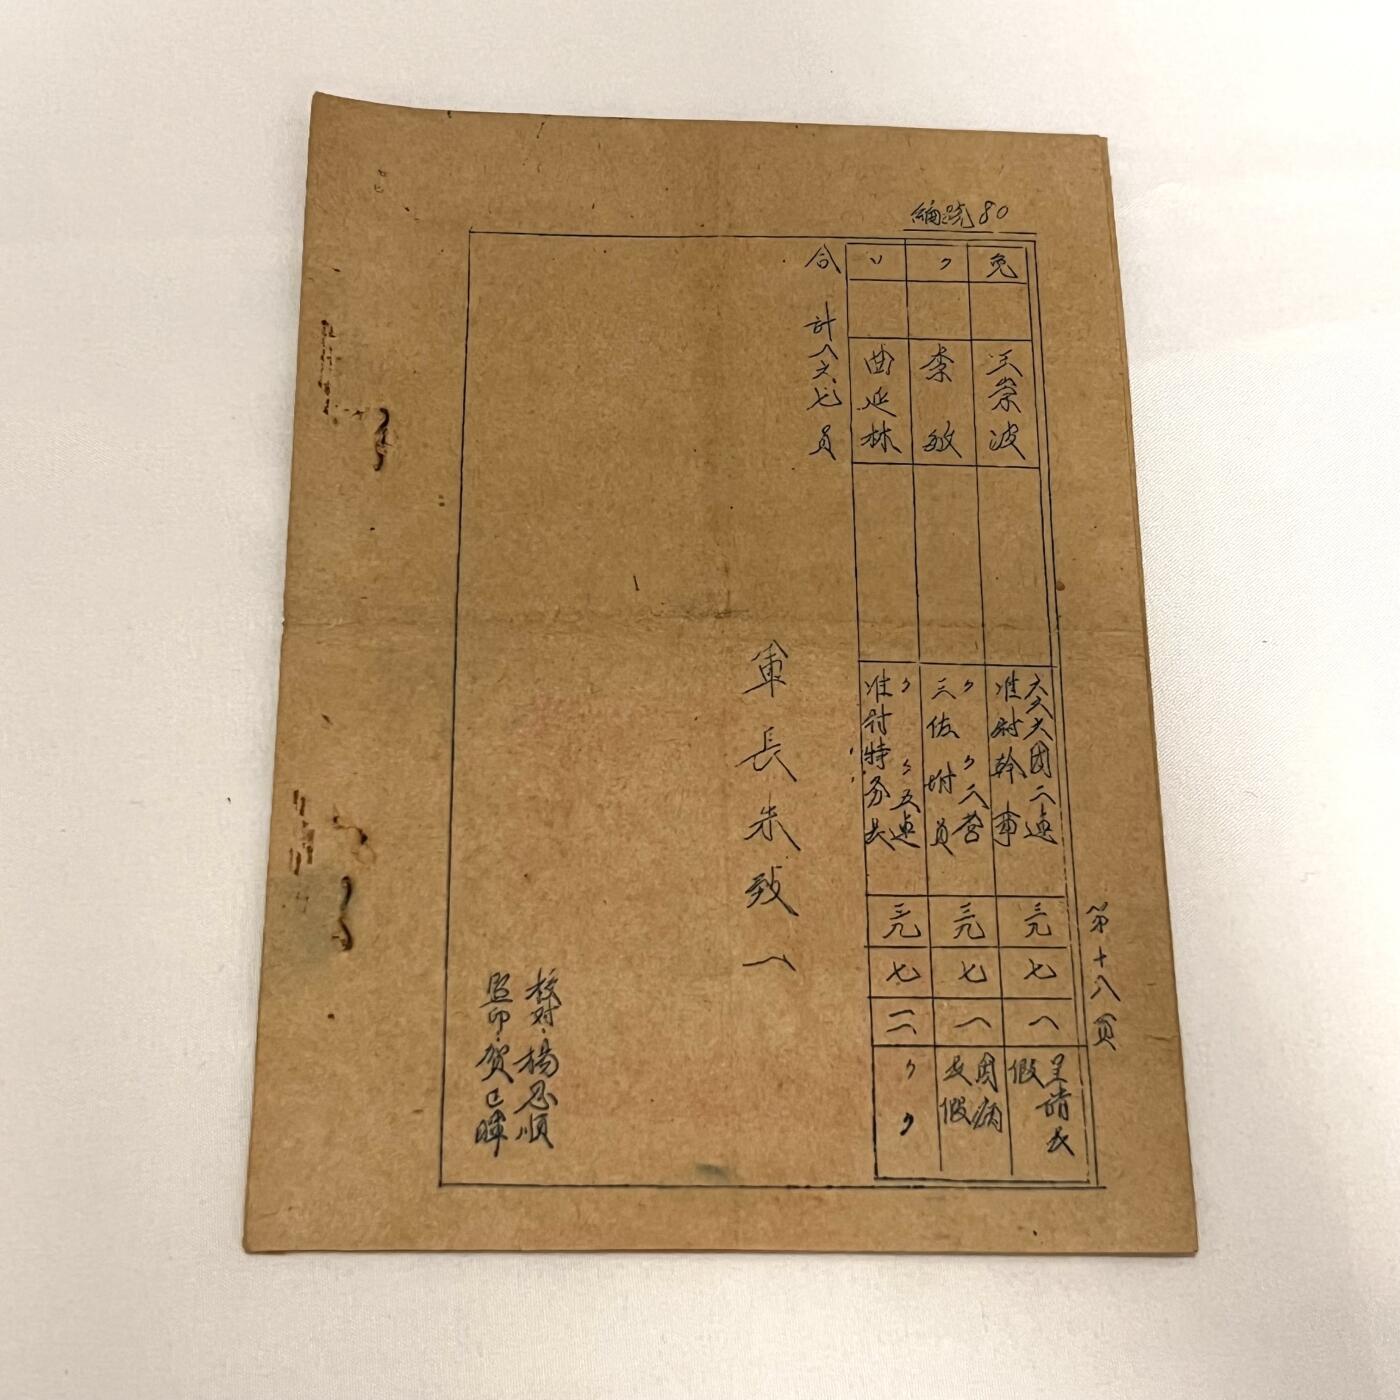 編號80
第十八頁
免
王崇波
六六六團二連
准尉幹事
三九
七
一
呈請長
假
〃
李敏
〃〃二营
三佐附員
三九
七
一
因病
長假
〃
曲延林
〃〃五連
准尉特务長
三九
七
一一
〃〃
合計八六七員
軍長朱致一
校对：楊忍順
监印：贺已暉